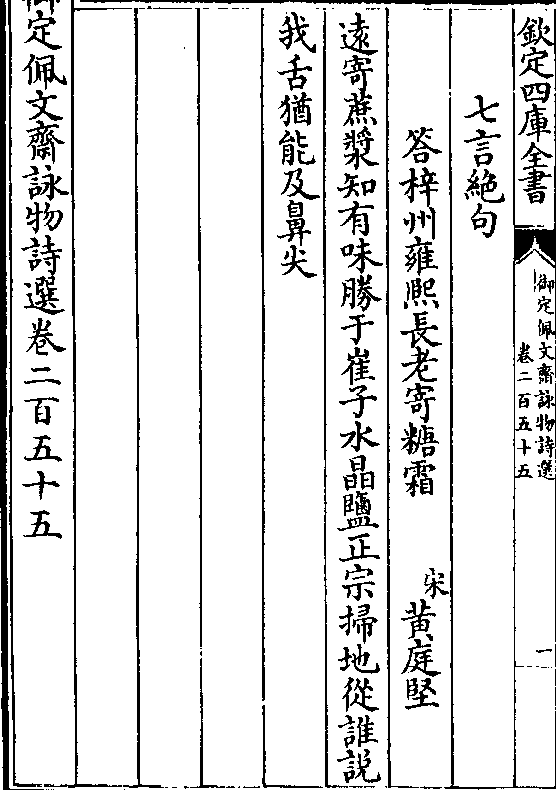 欽定四庫全書
御定佩文齋詠物詩選
卷二百五十五
一
七言絶句
答梓州雍熙長老寄糖霜
宋
黄庭堅
遠寄蔗漿知有味勝于崔子水晶鹽正宗掃地從誰說
我舌猶能及鼻尖
御定佩文齋詠物詩選卷二百五十五